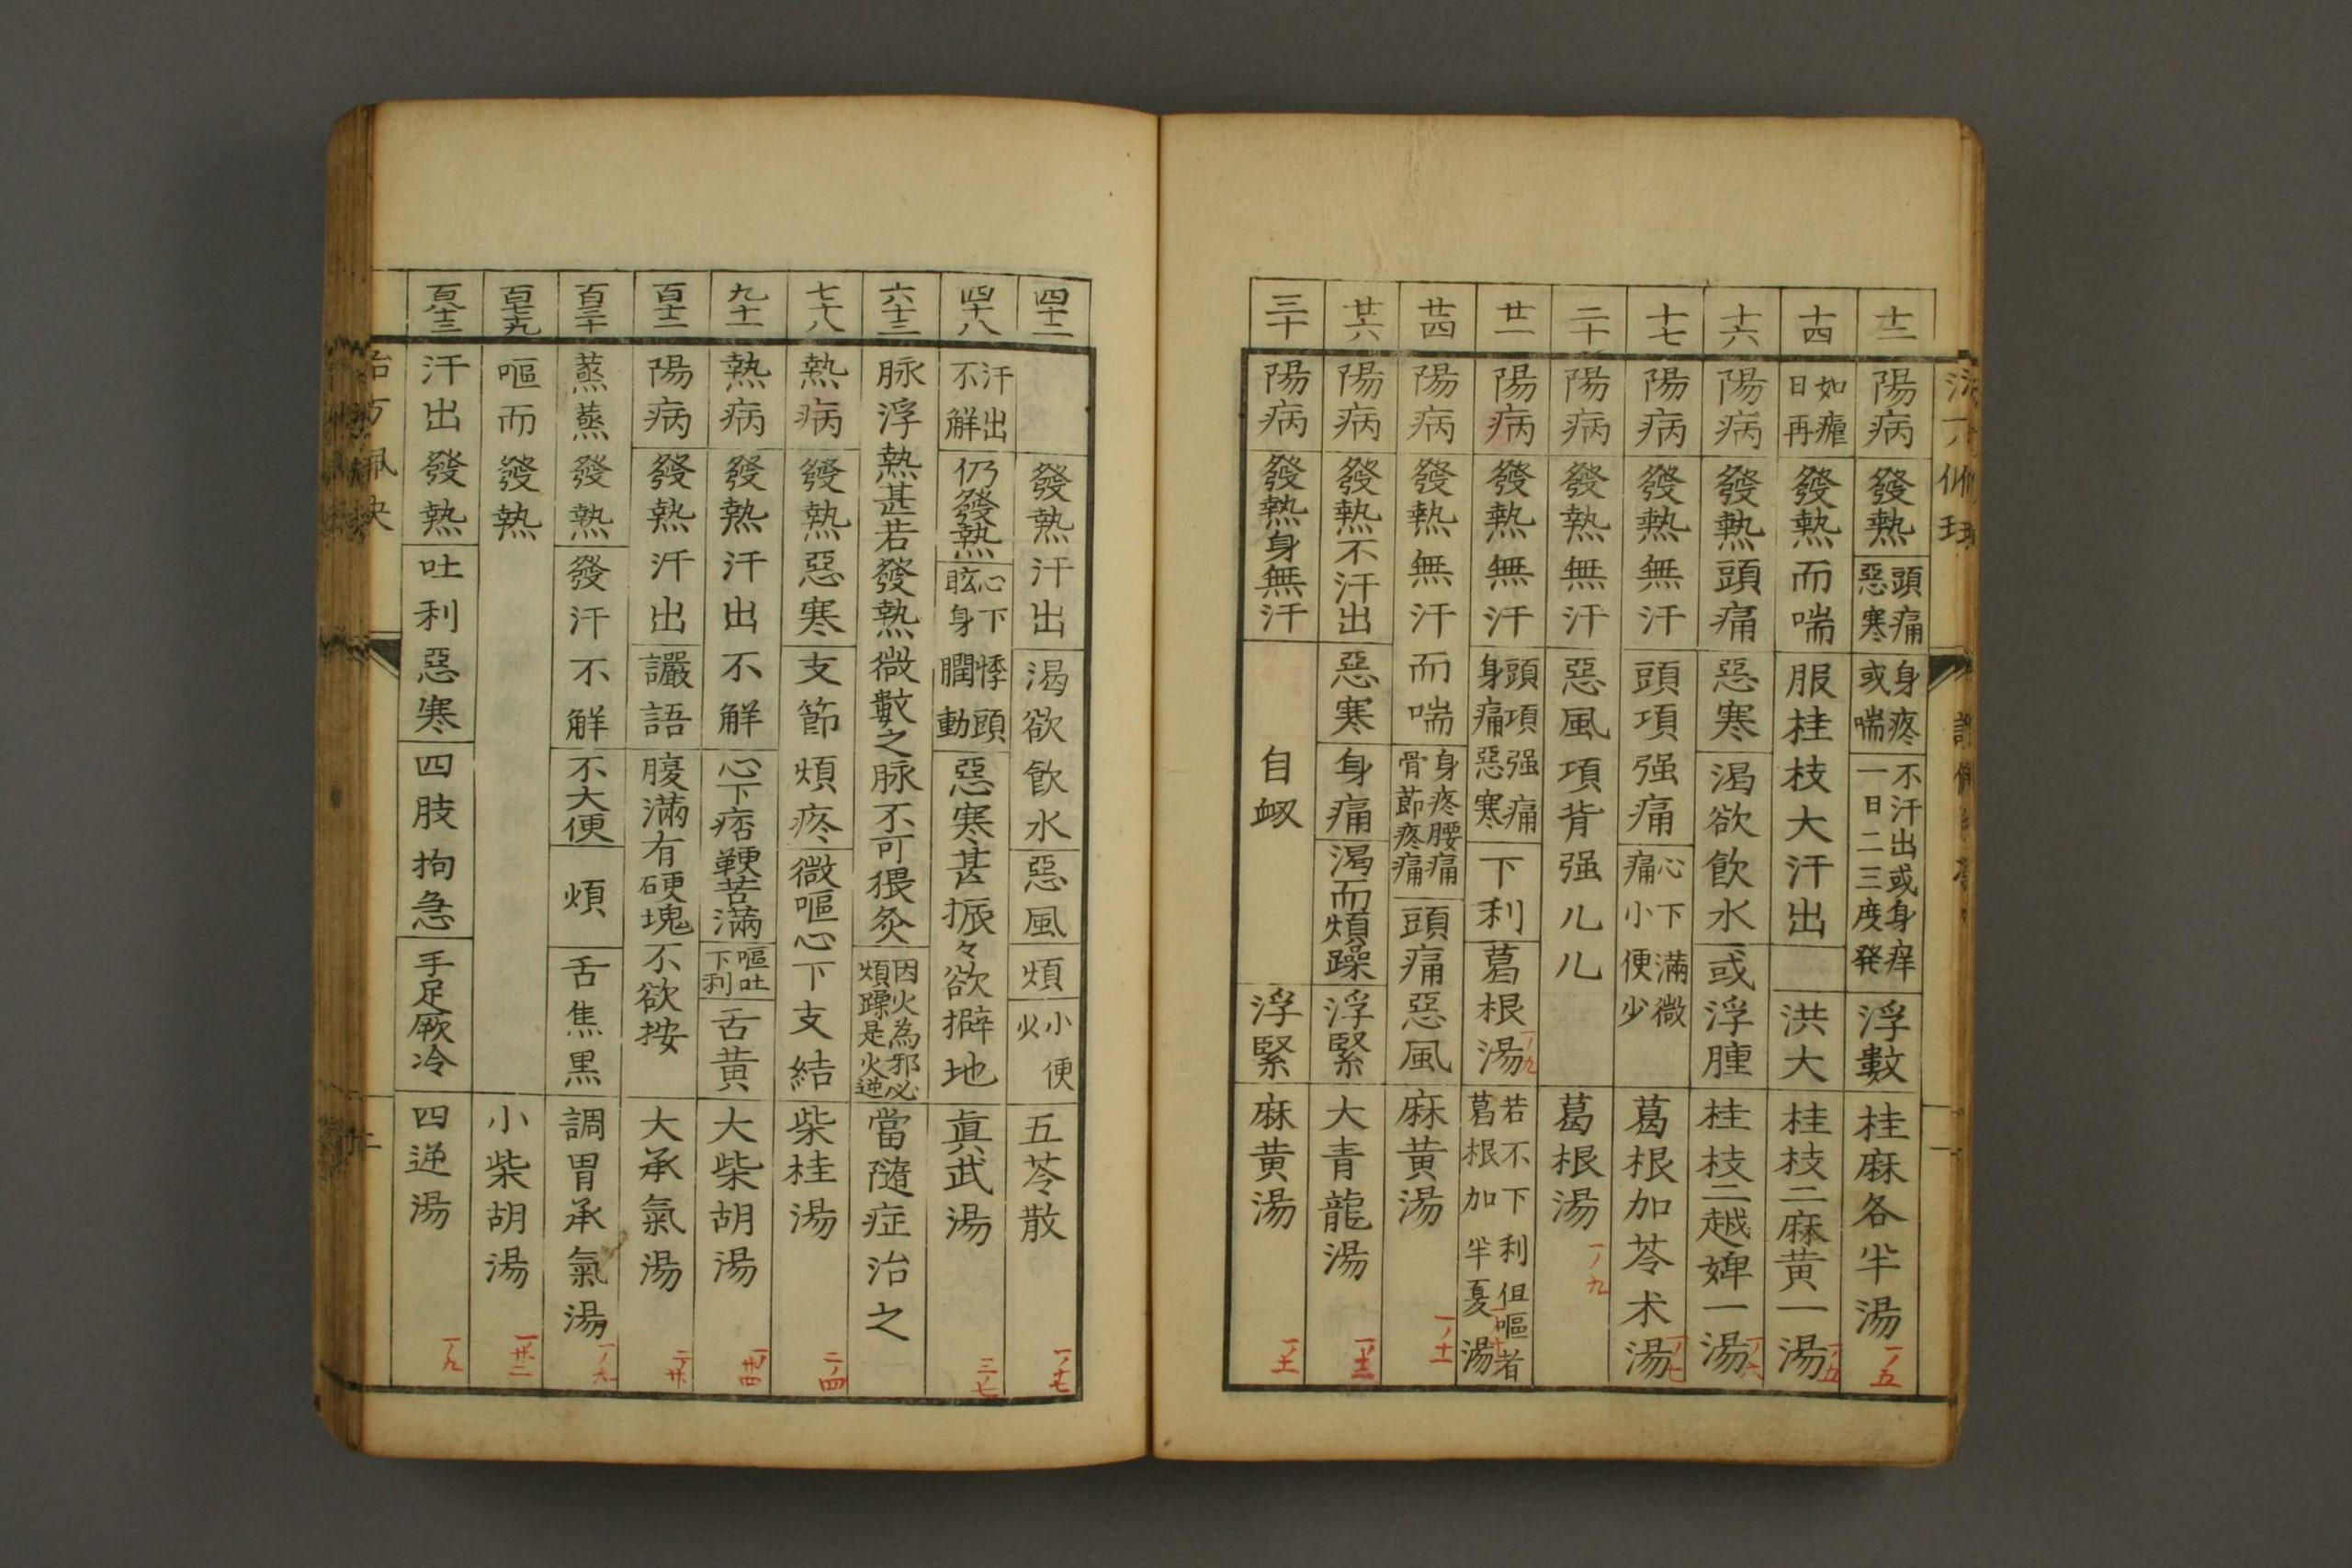 十二 陽病 發熱 頭痛惡寒 身疼或喘 不汗出或身痒一日二三度発 浮數 桂麻各半湯 一ノ五
十四 如瘧日再 發熱而喘 服桂枝大汗出 洪大 桂枝二麻黄一湯 一ノ五
十六 陽病 發熱頭痛 惡寒 渴欲飲水 或浮腫 桂枝二越婢一湯 一ノ六
十七 陽病 發熱無汗 頭項强痛 心下滿微痛小便少 葛根加苓朮湯 一ノ七
二十 陽病 發熱無汗 惡風項背强几几 葛根湯 一ノ九
廿一 陽病 發熱無汗 頭項强痛身痛惡寒 下利 葛根湯 一ノ九 若不下利但嘔者葛根加半夏湯
廿四 陽病 發熱無汗而喘 身疼腰痛骨節疼痛 頭痛惡風 麻黄湯 一ノ十一
廿六 陽病 發熱不汗出 惡寒 身痛 渴而煩躁 浮緊 大青龍湯
三十 陽病 發熱身無汗 自衂 浮緊 麻黄湯
四十二 發熱汗出 渴欲飲水 惡風 煩 小便少 五苓散
四十八 汗出不解 仍發熱 心下悸頭眩身瞤動 惡寒甚振々欲擗地 眞武湯 三ノ七
六十三 脉浮熱甚若發熱微數之脉不可猥灸 因火為邪必煩躁是火逆 當隨症治之
七十八 熱病 發熱惡寒 支節煩疼 微嘔心下支結 柴桂湯 二ノ四
九十一 熱病 發熱汗出不解 心下痞鞕苦滿 嘔吐下利 舌黄 大柴胡湯
百十二 陽病 發熱汗出 讝語 腹滿有硬塊不欲按 大承氣湯
百三十 蒸蒸發熱 發汗不解 不大便 煩 舌焦黒 調胃承氣湯
百七十九 嘔而發熱 小柴胡湯
百八十三 汗出發熱 吐利惡寒 四肢拘急 手足厥冷 四逆湯 一ノ九